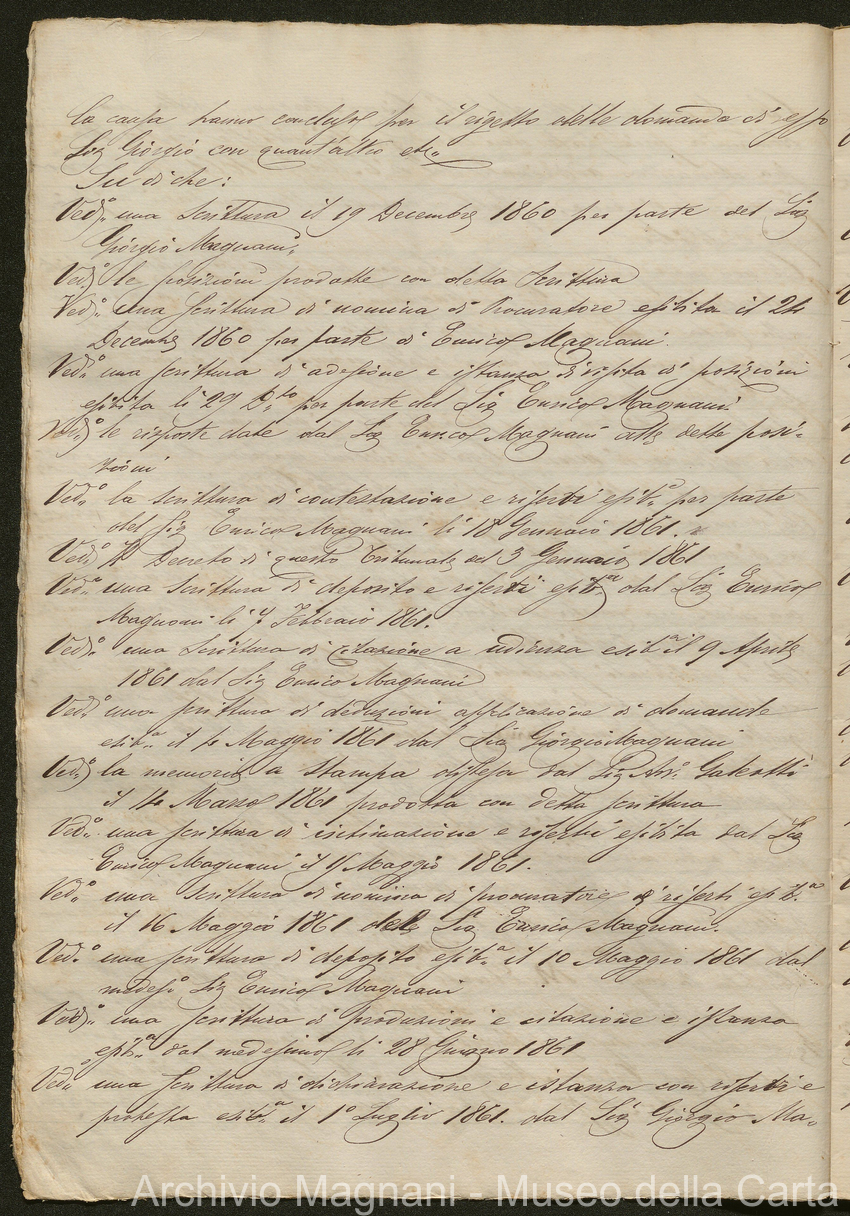 la causa hanno concluso per il rigetto delle domande di esso
Sig Giorgio con quant'altro etc.
Su di che:
Ved.° una Scrittura il 19 Decembre 1860 per parte del Sig
Giorgio Magnani.
Ved.° le posizioni prodotte con detta Scrittura
Ved.° una scrittura di nomina di Procuratore esibita il 24
Decembre 1860 per parte di Enrico Magnani.
Ved.° una scrittura di adesione e istanza di posizioni
esibita li 29 D.to per parte del Sig Enrico Magnani.
Ved.° le risposte date dal Sig Enrico Magnani alle dette posi-
zioni
Ved.° la scrittura di contestazione e riferti esib.a per parte
del Sig Enrico Magnani li 18 Gennaio 1861.
Ved.° Il Decreto di questo Tribunale del 3 Gennaio 1861
Ved.° una scrittura di deposito e riferti esib.a dal Sig Enrico
Magnani li Febbraio 1861.
Ved.° una Scrittura di citazione a udienza esib.a il 9 Aprile
1861 dal Sig Enrico Magnani
Ved.° una scrittura di deduzioni applicazione di domande
esib.a il Maggio 1861 dal Sig Giorgio Magnani
Ved.° la memoria a stampa distesa dal Sig Avv. Galeotti
il 14 Marzo 1861 prodotta con detta scrittura
Ved.° una scrittura di intimazione e riferti esibita dal Sig
Enrico Magnani il Maggio 1861.
Ved.° una Scrittura di nomina di procuratore e riferti esib.a
il 16 Maggio 1861 del Sig Enrico Magnani.
Ved.° una scrittura di deposito esib.a il 10 Maggio 1861 dal
medes.° Sig Enrico Magnani
Ved.° una scrittura di produzioni e citazione e istanza
esib.a dal medesimo li 28 Giugno 1861
Ved.° una scrittura di dichiarazione e istanza con riferti e
protesta esib.a il 1° Luglio 1861. dal Sig Giorgio Ma=
Archivio Magnani - Museo della Carta